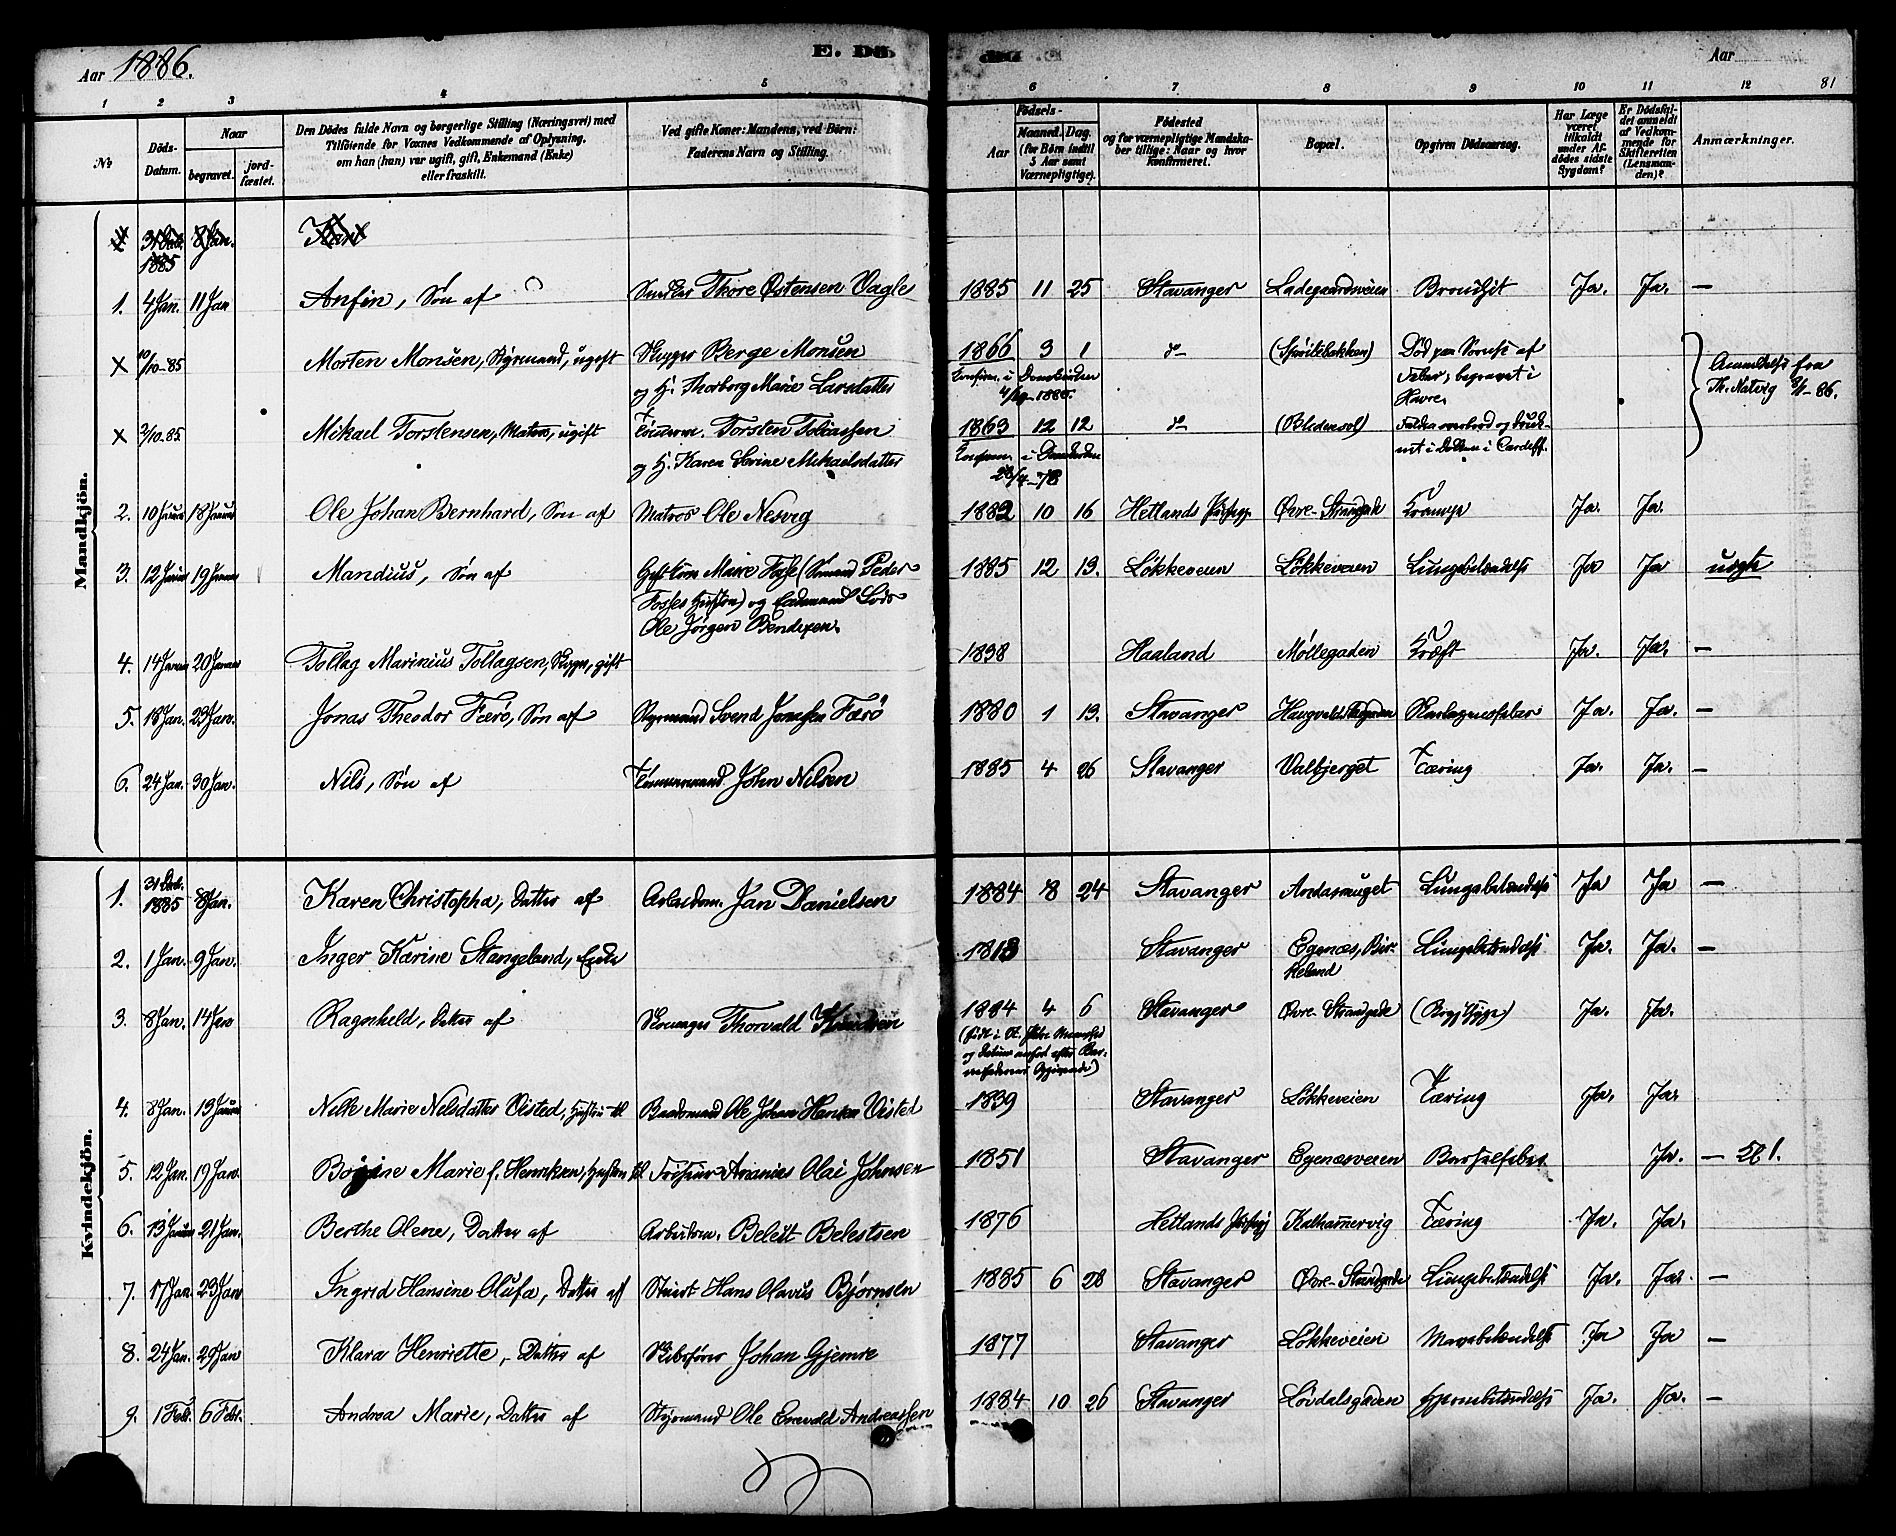 Aar 1886.
E. Dø
Aar
81
1 2 3 4 5 6 7 8 9 10 11 12
No
Døds-Datum.
Naar
begravet.
jord-fæstet.
Den Dødes fulde Navn og borgerlige Stilling (Næringsvei) med
Tilføiende for Voxnes Vedkommende af Oplysning,
om han (hun) var ugift, gift, Enkemand (Enke)
eller fraskilt.
Ved gifte Koner: Mandens, ved Børn:
Faderens Navn og Stilling.
Fødsels-
Aar
Maaned. Dag.
(for Børn indtil
5 Aar samt
Værnepligtige).
Fødested
og for værnepligtige Mandska-
ber tillige: Naar og hvor
konfirmeret.
Bopæl.
Opgiven Dødsaarsag.
Har Læge
været
tilkaldt
under Af-
dødes sidste
Sygdom?
Er Dødsfal-
det anmeldt
af Vedkom-
mende for
Skifteretten
(Lensman-
den)?
Anmærkninger.
Mandkjön.
31 Dec. 1885 8 Jan. Karl
1. 4 Jan. 11 Jan Anfin, Søn af Thore Østensen Vagle 1885 11 25 Stavanger Ladegaardsveien Bronchit Ja. Ja. —
x 10/10-85 Morten Monsen, Styrmand, ugift Skipper Berge Monsen 1866 3 1 do (Spilebakken) Død paa af
og H. Thorborg Marie Larsdatter Konfirm. i Domkirken Feber, begravet i
1880. Havre
Anmeldt fra
Th. Natvig 86.
x 2/10.85 Mikael Torstensen, Matros, ugift Tømmerm. Torsten Tobiassen 1863 12 12 do (Blidensol) Falden overbord og druk-
og H. Karen Serine Mikaelsdatter Konfirm. i Domkirken net i Dokken i Cardiff.
28/4-78
2. 10 Januar 18 Januar Ole Johan Bernhard, Søn af Matros Ole Nesvig 1882 10 16 Hetlands Præstegj. Øvre-Strandgade Ja. Ja.
3. 12 Januar 19 Januar Mandius, Søn af Gift Kone Marie Fosse (Sømand Peder 1885 12 13. Løkkeveien Løkkeveien Lungebetændelse Ja Ja uægte
Fosses Hustru) og Enkemand Lods
Ole Jørgen Bendixen.
4. 14 Januar 20 Januar Tollag Marinius Tollagsen, gift 1838 Haaland Møllegaden Kræft Ja. Ja. —
5. 18 Jan. 23 Jan. Jonas Theodor Færø, Søn af Styrmand Svend Jonassen Færø 1880 1 13. Stavanger Haugvaldstadgaden Skarlagensfeber Ja. Ja. —
6. 24 Jan. 30 Jan. Nils, Søn af Tømmermand John Nilsen 1885 4 26 Stavanger Valbjerget Tæring Ja. Ja. —
Kvindekjön.
1. 31 Dec. 1885 8 Jan. Karen Christopha, Datter af Arbeidsm. Jan Danielsen 1884 8 24 Stavanger Andasmuget Lungebetændelse Ja Ja —
2. 1 Jan. 9 Jan. Inger Karine Stangeland, Enke 1813 Stavanger Egenæs, Bir-
keland Lungebetændelse Ja. Ja. —
3. 8 Jan. 14 Jan Ragnhild, Datter af Thorvald Knudsen 1884 4 6 Stavanger Øvre Strandgade (Brystsyge) Ja. Ja.
(født i St. Petri Menighed
og Datum anført efter Bar-
nefaderens Opgivende)
4. 8 Jan. 13 Januar Nelle Marie Nelsdatter Visted, Hustru til Baadsmand Ole Johan Hansen Visted 1839 Stavanger Løkkeveien Tæring Ja. Ja.
5. 12 Jan. 19 Jan. Bojine Marie f. Henriksen, Hustru til Ananias Olai Johnsen 1851 Stavanger Egenæsveien Barselfeber Ja. — 1.
6. 13 Januar 21 Jan. Berthe Olene, Datter af Arbeidsm. Belest Belestsen 1876 Hetlands Præstegj Kalhammervig Tæring Ja. Ja.
7. 17 Jan. 23 Jan Ingrid Hansine Olufa, Datter af Stuert Hans Olavus Bjørnsen 1885 6 28 Stavanger Øvre-Strandgade Lungebetændelse Ja. Ja. —
8. 24 Jan. 29 Jan Klara Henriette, Datter af Skibsfører Johan Gjemre 1877 Stavanger Løkkeveien Mavebetændelse Ja Ja —
9. 1 Febr. 6 Febr. Andrea Marie, Datter af Styrmand Ole Enevald Andreassen 1884 10 26 Stavanger Løvdalsgaden Hjernebetændelse Ja. Ja. —